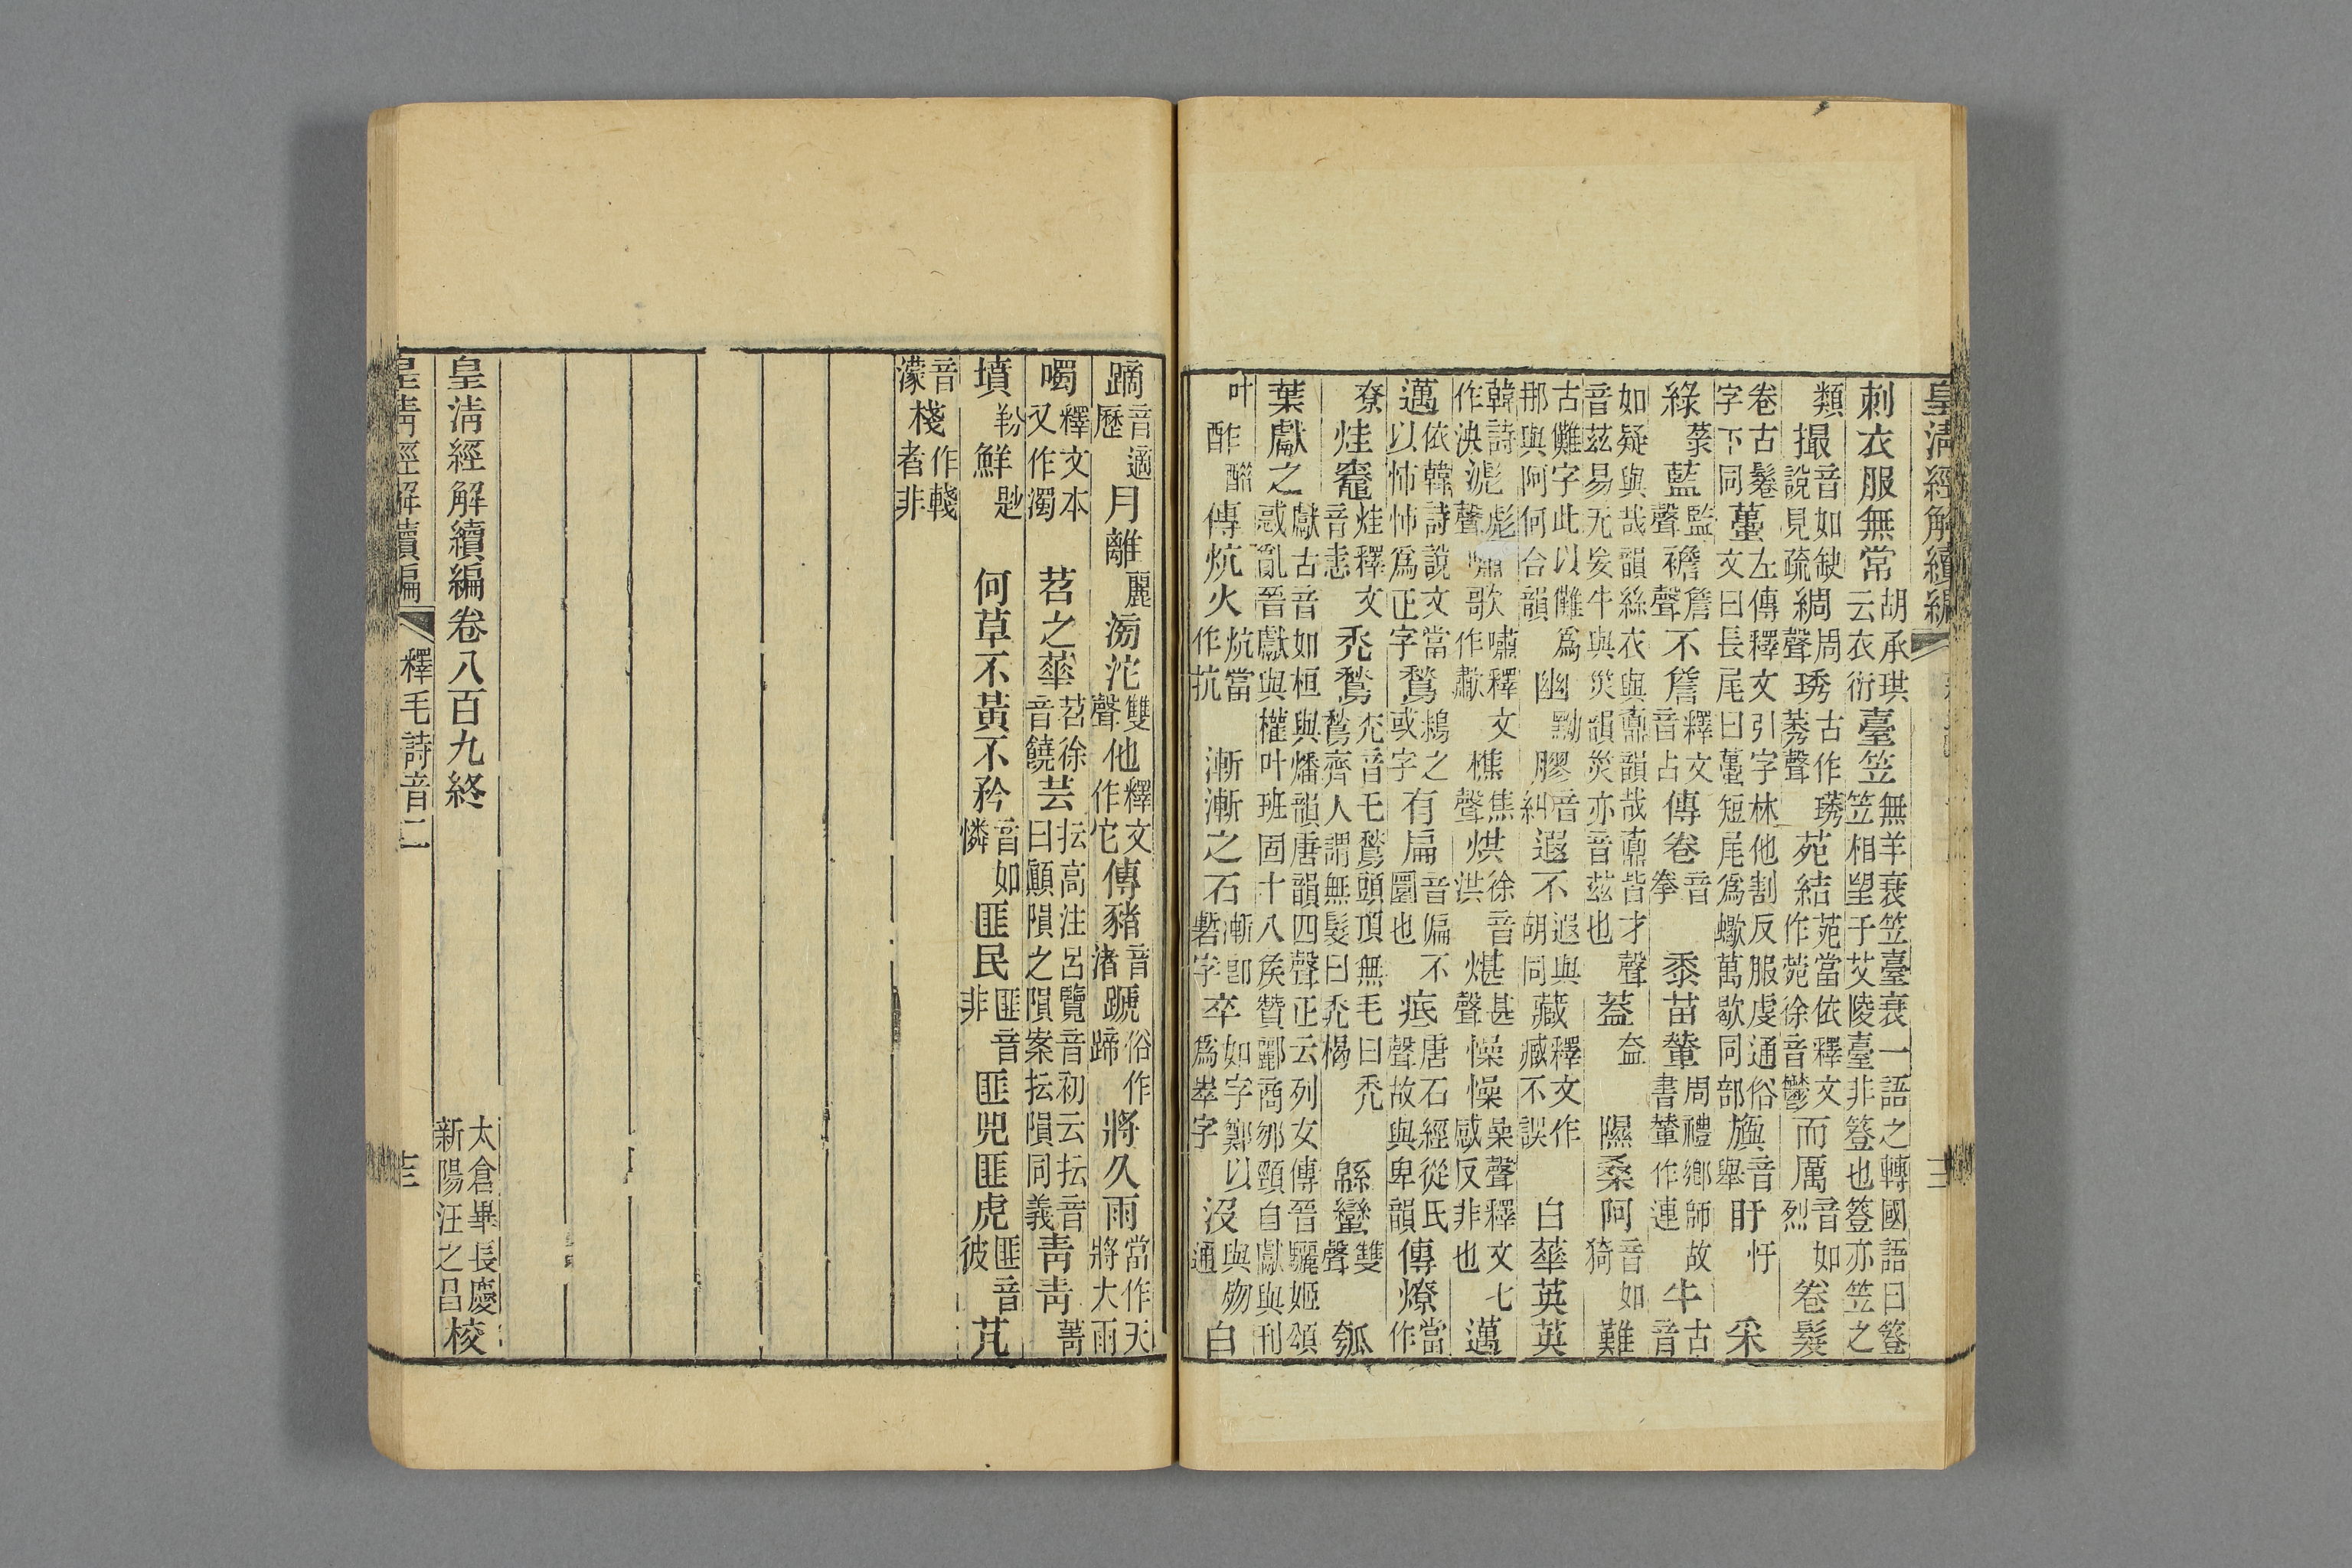 皇清經解續編
刺衣服無常胡承珙云衣衍臺笠無羊蓑笠臺蓑一語之轉國語曰簦笠相望子艾陵臺非簦也簦亦笠之
類撮音如缺說見疏綢周聲琇古作璓莠聲苑結苑當依釋文作菀徐音鬱而厲音如烈卷髮
卷古鬈字下同蠆左傳釋文引字林他割反服虔通俗文曰長尾曰蠆短尾爲蠍萬歇同部旟音舉盱忬采
綠菉藍監聲襜詹聲不詹釋文音占傳卷音拳黍苗輦周禮鄉師故書輦作連牛古音
如疑與哉韻絲衣與鼒韻哉鼒皆才聲音茲易无妄牛與災韻災亦音茲也蓋盇隰桑阿音如猗難
古儺字此以儺爲那與阿何合韻幽黝膠音糾遐不遐與胡同藏釋文作臧不誤白華英英
韓詩作泱滮彪聲嘯歌嘯釋文作歗樵焦聲烘徐音洪煁甚聲懆懆喿聲釋文七感反非也邁
邁依韓詩說文當以㤄㤄爲正字鶖鶖之或字有扁音偏不圜也疧唐石經從氏聲故與卑韻傳燎當作
尞烓竈烓釋文音恚禿鶖禿音毛鶖頭頂無毛曰禿鶖齊人謂無髮曰禿楬緜蠻雙聲瓠
葉獻之獻古音如桓與燔韻唐韻四聲正云列女傳晉驪姬頌惑亂晉獻與權叶班固十八矦贊酈商邠頸自獻與刊
叶酢醋傳炕火炕當作抗漸漸之石漸卽磛字卒如字鄭以爲崒字沒與歾通白
蹢音適歷月離麗滂沱雙聲他釋文作它傳豬音渚蹏俗作蹄將久雨當作天將大雨
噣釋文本又作濁苕之華苕徐音饒芸抎高注呂覽音云抎音曰顚隕之隕案抎隕同義靑靑菁
墳羒鮮尟何草不黃不矜音如憐匪民匪音非匪兕匪虎匪音彼芃
音濛棧作輚者非
皇清經解續編卷八百九終
太倉畢長慶
新陽汪之昌校
皇清經解續編 釋毛詩音二